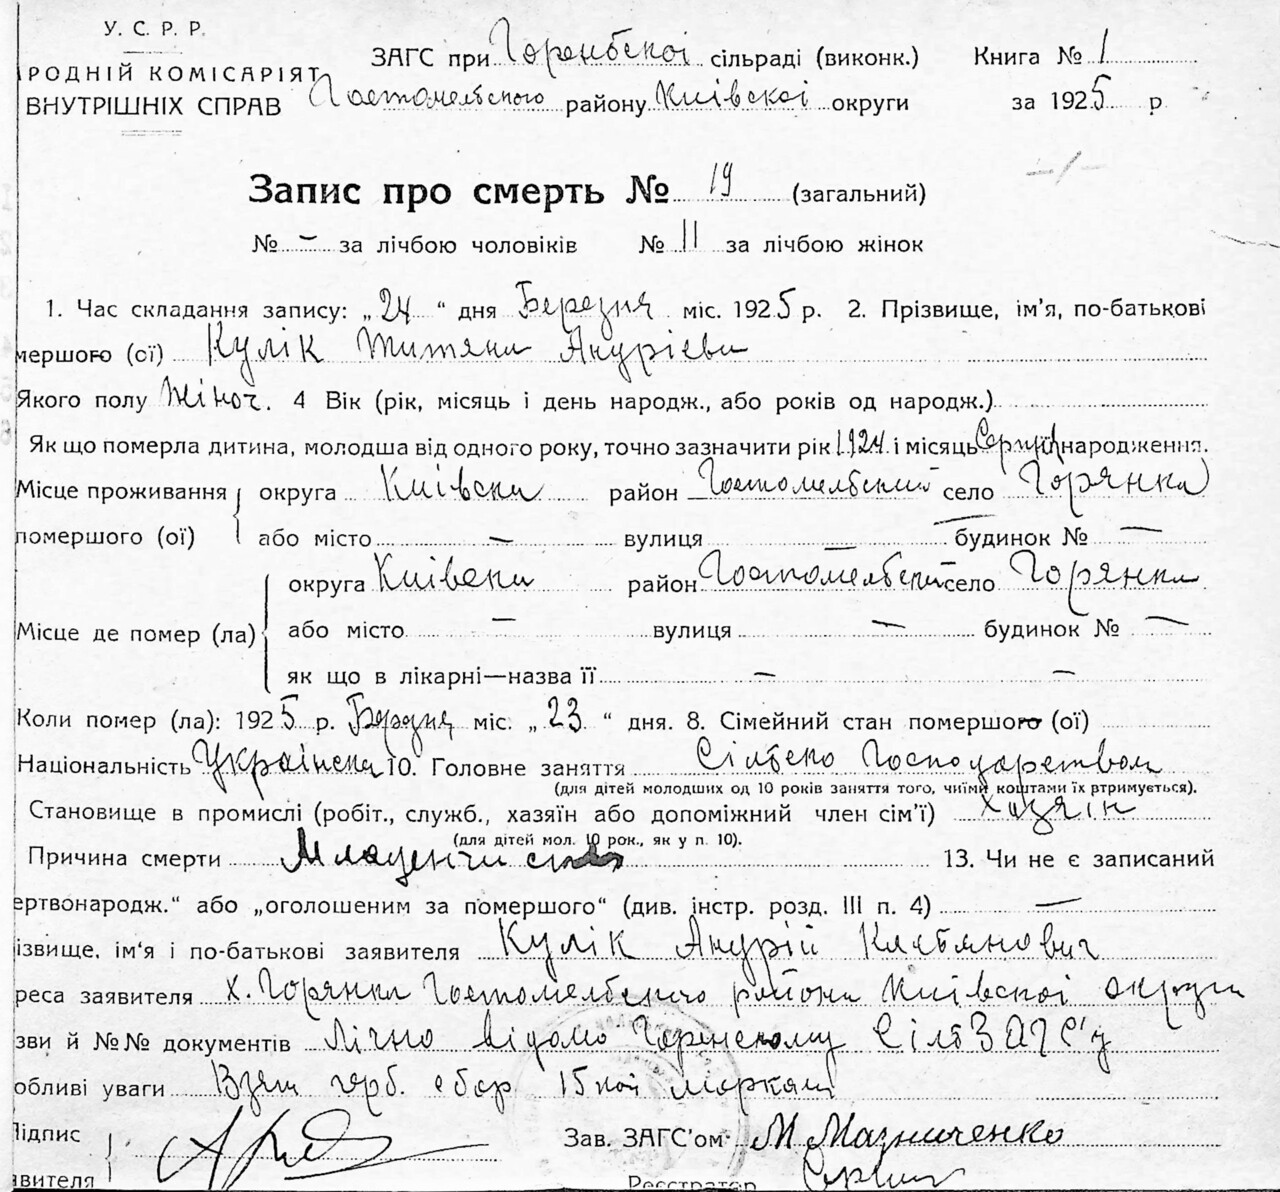 У. С. Р. Р.
РОДНІЙ КОМІСАРІЯТ
ВНУТРІШНІХ СПРАВ
ЗАГС при Горенбскоі сільраді (виконк.) Книга № 1
Гостомельского району Київскоі округи за 1925 р
Запис про смерть № 19 (загальний)
№ – за лічбою чоловіків № 11 за лічбою жінок
1. Час складання запису: „24“ дня Березня міс. 1925 р. 2. Прізвище, ім’я, по-батькові
мершого (ої) Кулік Титяна Андріева
Якого полу Жіноч. 4 Вік (рік, місяць і день народж., або років од народж.)
Як що померла дитина, молодша від одного року, точно зазначити рік 1924 і місяць народження.
Місце проживання округа Київска район Гостомельский село Горянка
помершого (ої) або місто – вулиця – будинок № –
округа Київска район Гостомельский село Горянка
Місце де помер (ла) або місто – вулиця – будинок № –
як що в лікарні—назва її – –
Коли помер (ла): 1925 р. Березня міс. „23“ дня. 8. Сімейний стан помершого (ої)
Національність Українска 10. Головне заняття Сільско Господарством
(для дітей молодших од 10 років заняття того, чиїми коштами їх втримується).
Становище в промислі (робіт., служб., хазяїн або допоміжний член сім’ї) хазяін
(для дітей мол. 10 рок., як у п. 10).
Причина смерти Младенчи 13. Чи не є записаний
ертвонародж.“ або „оголошеним за помершого“ (див. інстр. розд. III п. 4) –
ізвище, ім’я і по-батькові заявителя Кулік Андрій Касьянович
реса заявителя х. Горянка Гостомельского района Київскоі округи
зви й №№ документів Лічно відомо Горенскому СільЗАГС’у
обливі уваги Взят герб. сбор 15 коп марками
Підпис
явителя
Зав. ЗАГС’ом М Мазниченко
Реєстратор